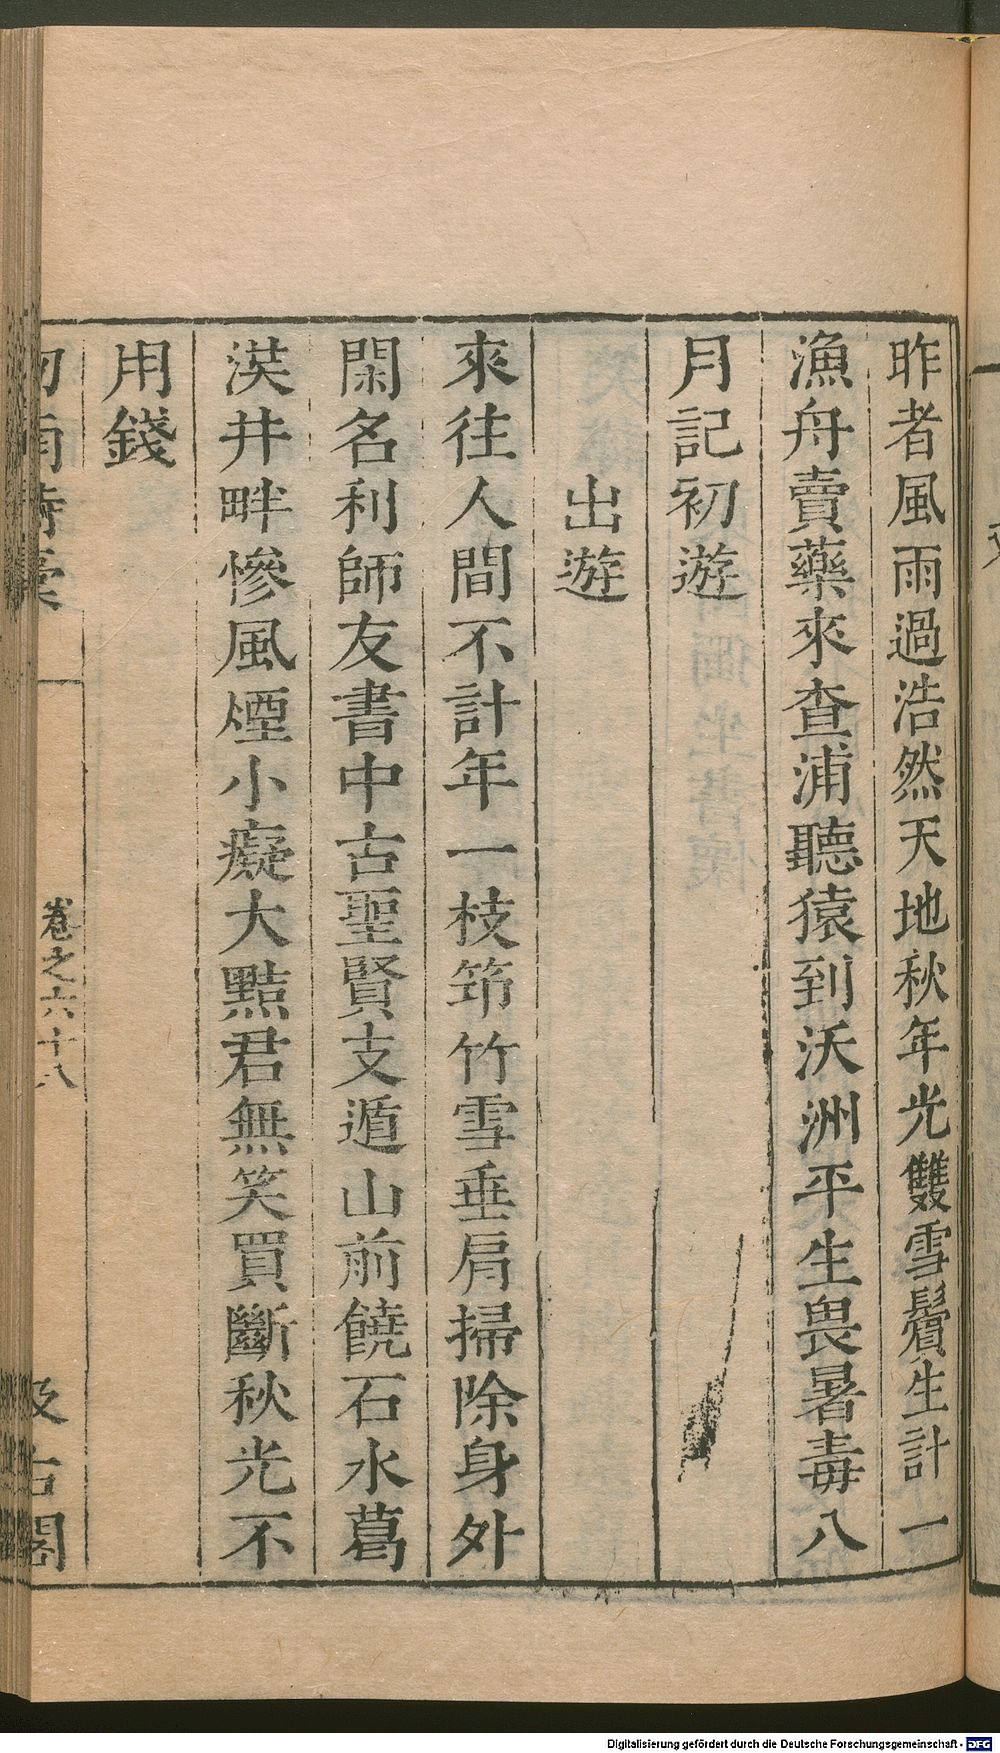 昨者風雨過浩然天地秋年光雙雪鬢生計一
漁舟賣藥來查浦聽猿到沃洲平生畏暑毒八
月記初遊
出遊
來往人間不計年一枝筇竹雪垂肩掃除身外
閑名利師友書中古聖賢支遁山前饒石水葛
洪井畔慘風煙小癡大黠君無笑買斷秋光不
用錢
卷之六十八
Digitalisierung gefördert durch die Deutsche Forschungsgemeinschaft - DFG